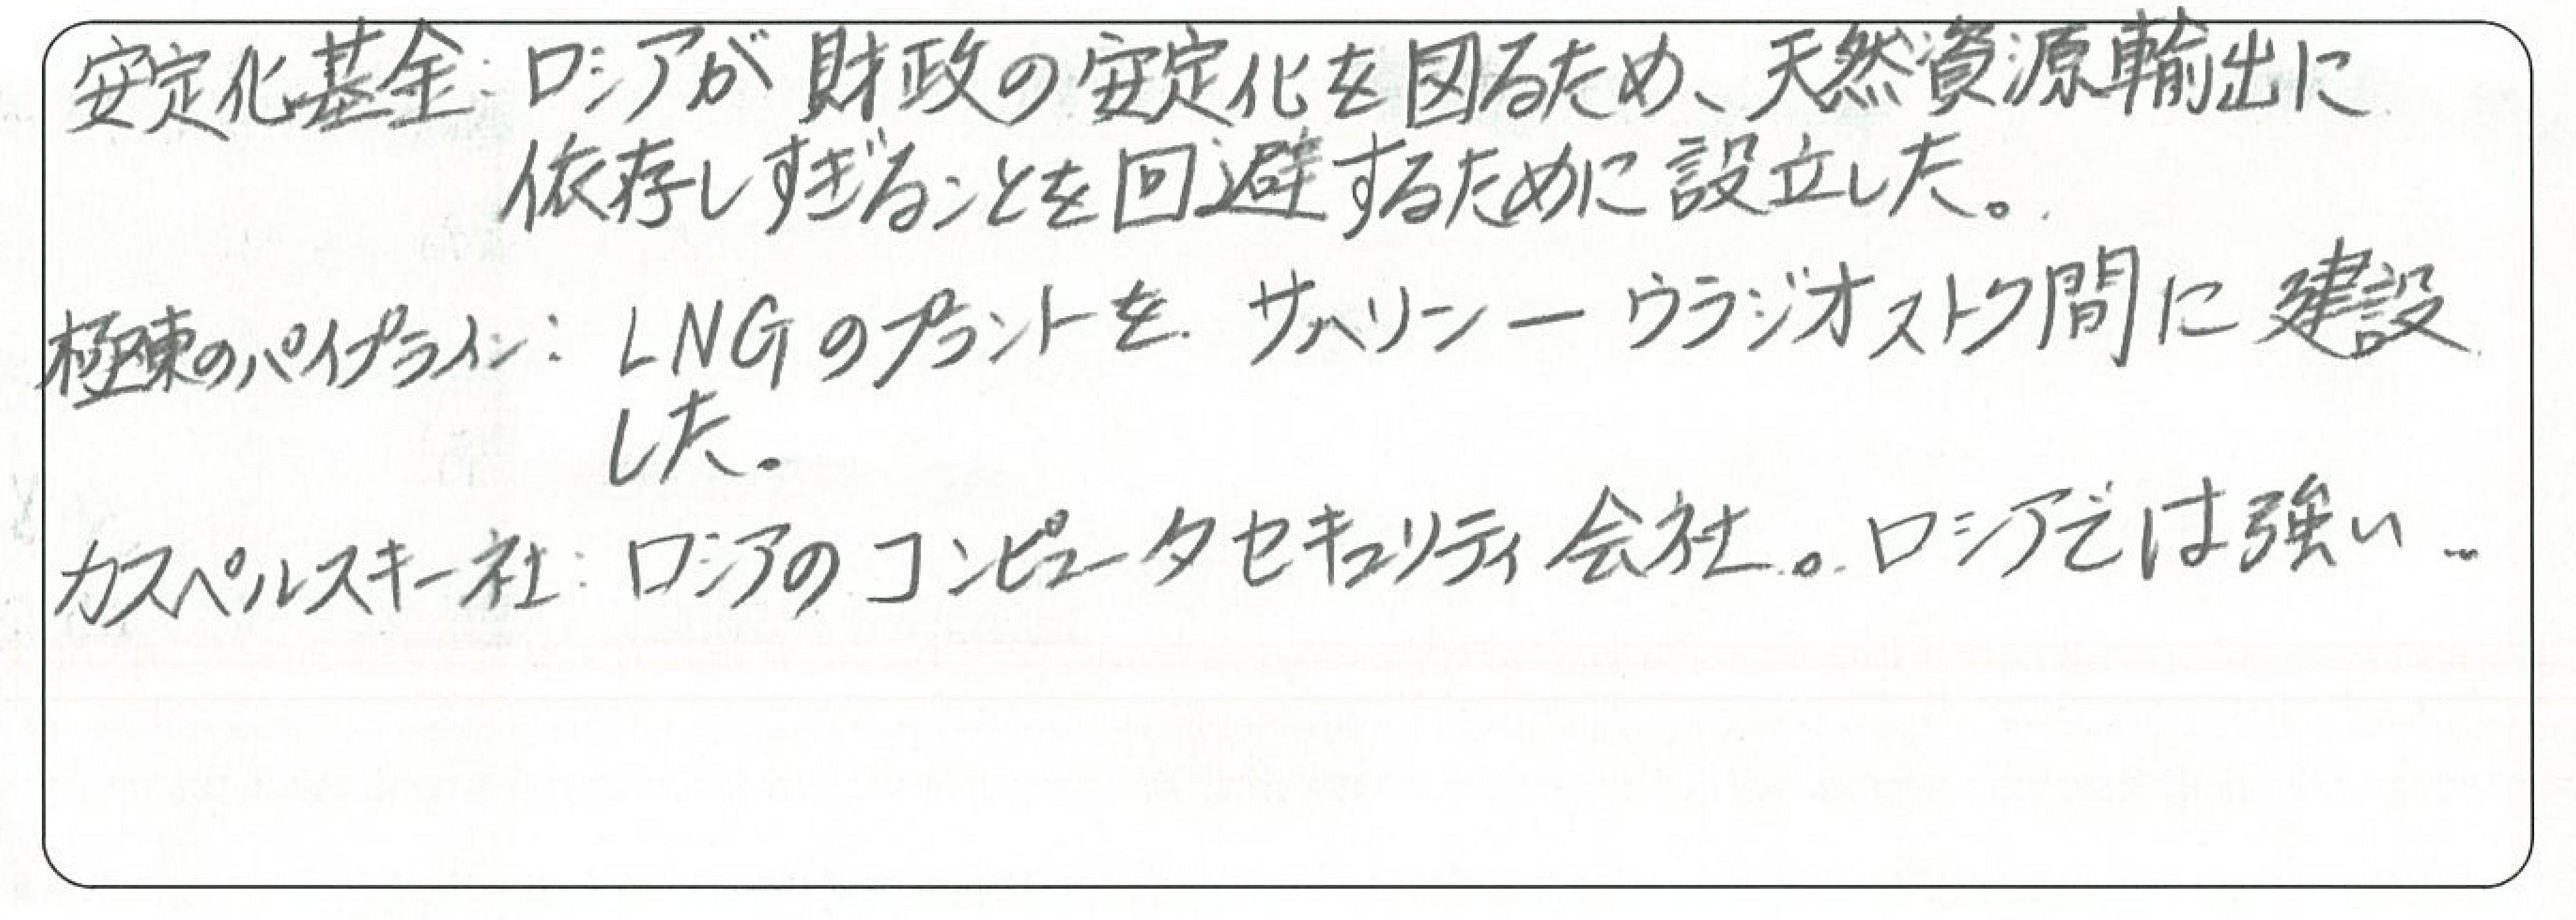 安定化基金：ロシアが財政の安定化を図るため、天然資源輸出に
依存しすぎることを回避するために設立した。
極東のパイプライン：LNGのプラントを サハリンーウラジオストク間に建設
した。
カスペルスキー社：ロシアのコンピュータセキュリティ会社。ロシアでは強い…